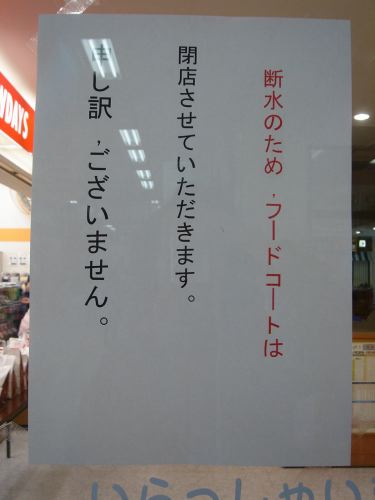 断水のため,フードコートは
閉店させていただきます。
申し訳,ございません。
NDAYS
いらっしゃい